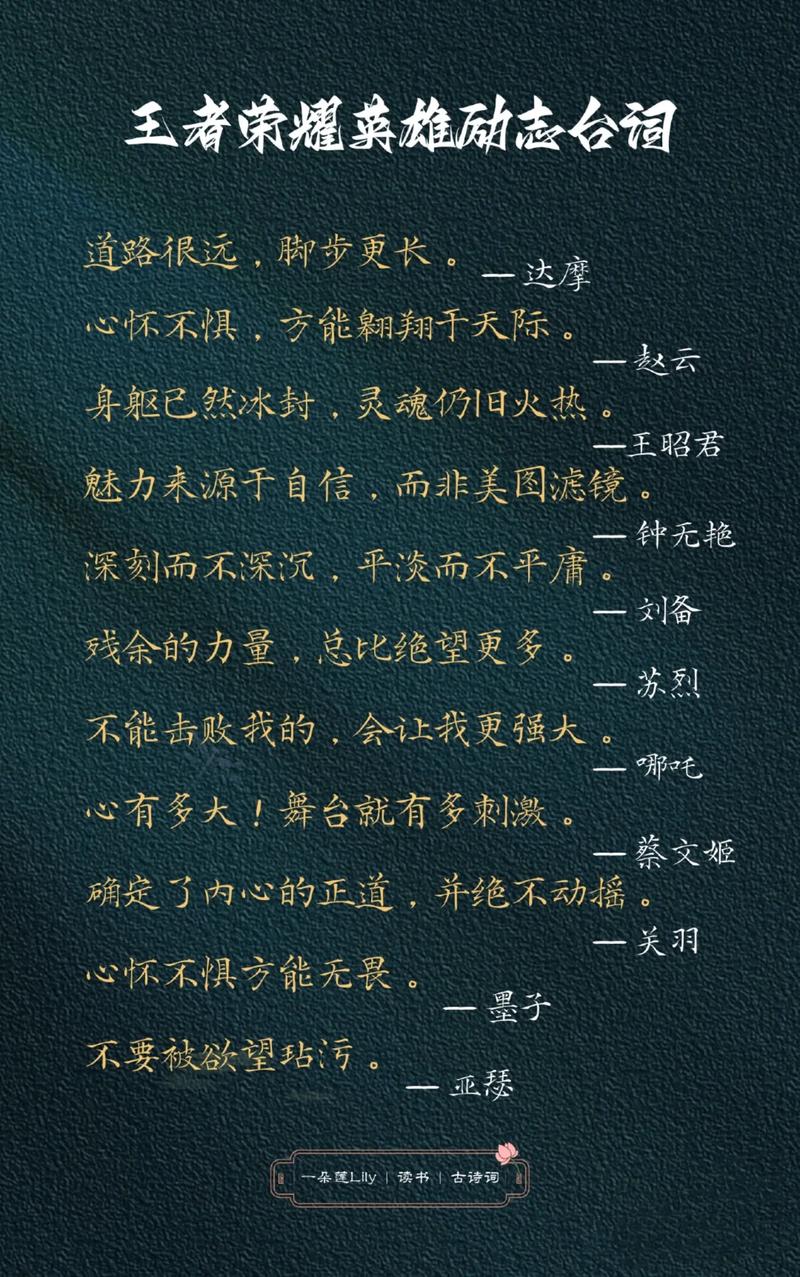 王者荣耀英雄励志台词
道路很远，脚步更长。
— 达摩
心怀不惧，方能翱翔于天际。
— 赵云
身躯已然冰封，灵魂仍旧火热。
—王昭君
魅力来源于自信，而非美图滤镜。
— 钟无艳
深刻而不深沉，平淡而不平庸。
— 刘备
残余的力量，总比绝望更多。
— 苏烈
不能击败我的，会让我更强大。
— 哪吒
心有多大！舞台就有多刺激。
— 蔡文姬
确定了内心的正道，并绝不动摇。
— 关羽
心怀不惧方能无畏。
— 墨子
不要被欲望玷污。
— 亚瑟
一朵莲Lily | 读书 | 古诗词